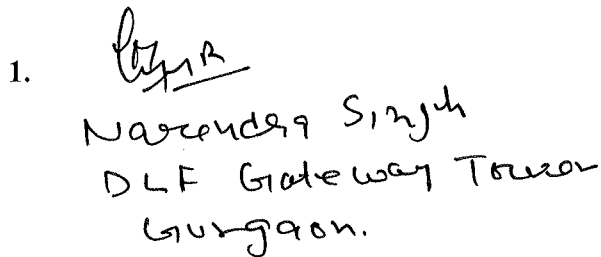 1.
Narendra Singh
DLF Gateway Tower
Gurgaon.